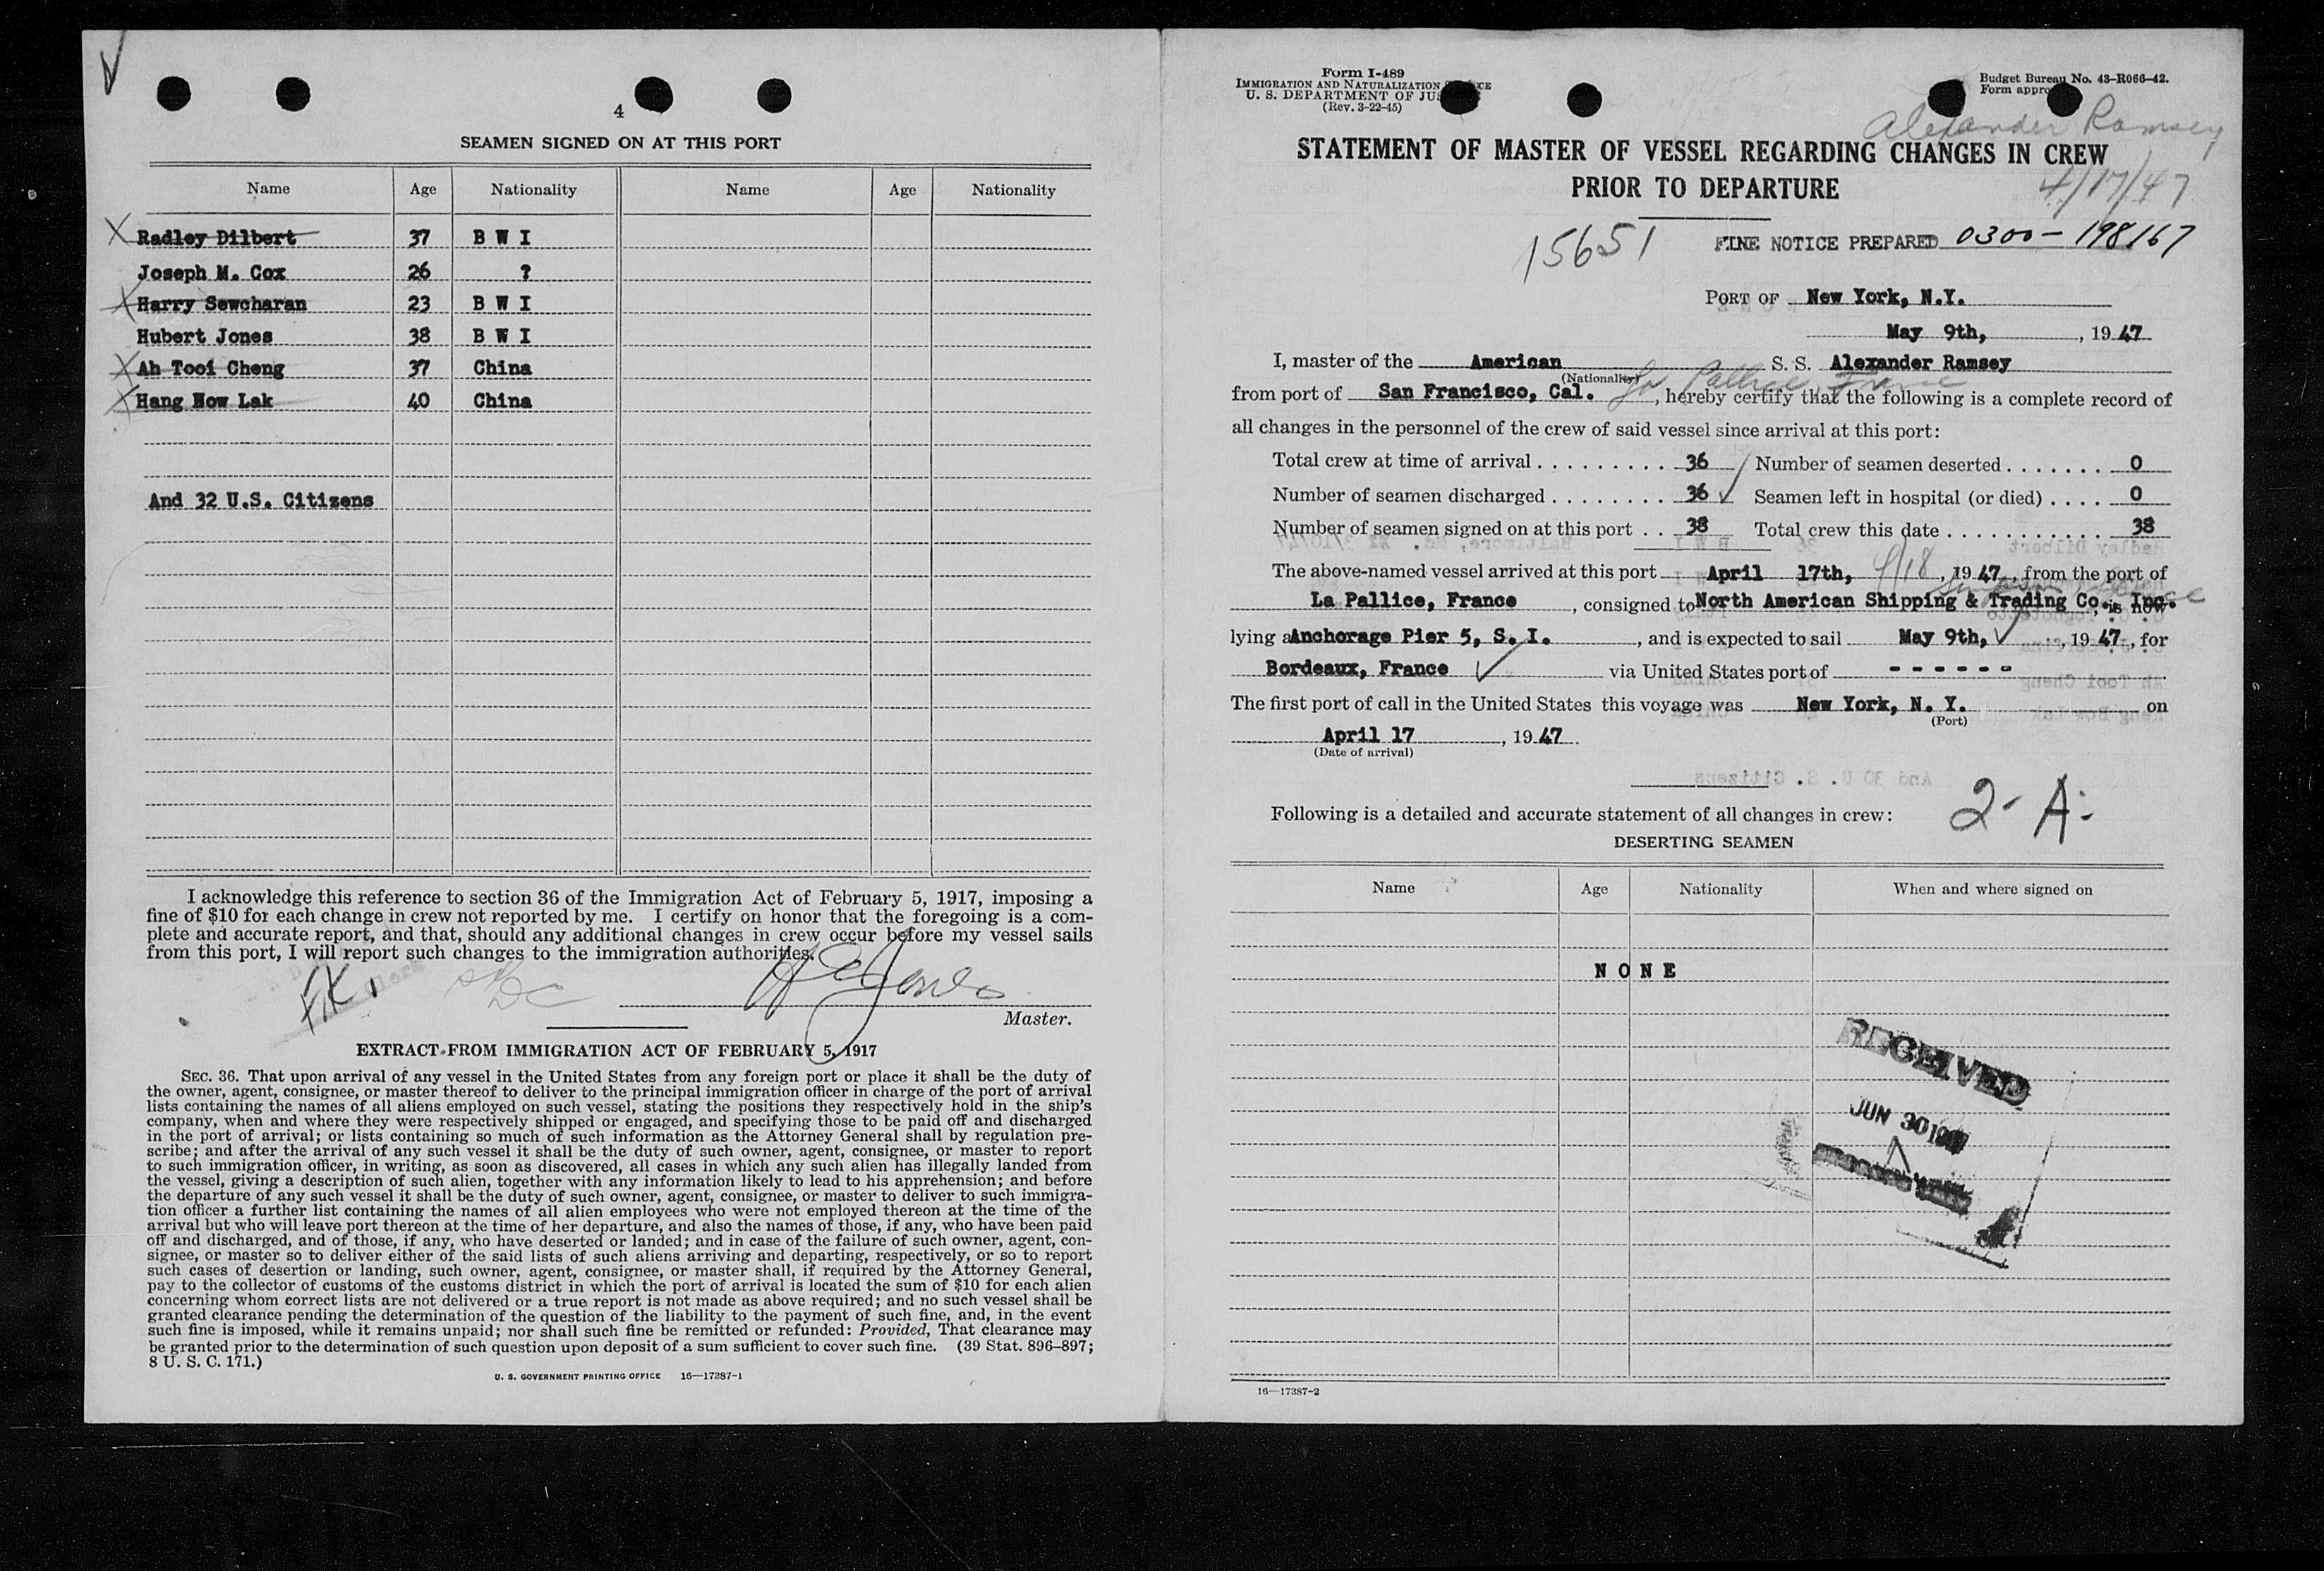 4
SEAMEN SIGNED ON AT THIS PORT
Name Age Nationality Name Age Nationality
X Radley Dilbert 37 B W I
Joseph M. Cox 26 ?
X Harry Sewcharan 23 B W I
Hubert Jones 38 B W I
X Ah Tooi Cheng 37 China
X Hang How Lak 40 China
And 32 U.S. Citizens
I acknowledge this reference to section 36 of the Immigration Act of February 5, 1917, imposing a
fine of $10 for each change in crew not reported by me. I certify on honor that the foregoing is a com-
plete and accurate report, and that, should any additional changes in crew occur before my vessel sails
from this port, I will report such changes to the immigration authorities.
Master.
EXTRACT FROM IMMIGRATION ACT OF FEBRUARY 5, 1917
SEC. 36. That upon arrival of any vessel in the United States from any foreign port or place it shall be the duty of
the owner, agent, consignee, or master thereof to deliver to the principal immigration officer in charge of the port of arrival
lists containing the names of all aliens employed on such vessel, stating the positions they respectively hold in the ship's
company, when and where they were respectively shipped or engaged, and specifying those to be paid off and discharged
in the port of arrival; or lists containing so much of such information as the Attorney General shall by regulation pre-
scribe; and after the arrival of any such vessel it shall be the duty of such owner, agent, consignee, or master to report
to such immigration officer, in writing, as soon as discovered, all cases in which any such alien has illegally landed from
the vessel, giving a description of such alien, together with any information likely to lead to his apprehension; and before
the departure of any such vessel it shall be the duty of such owner, agent, consignee, or master to deliver to such immigra-
tion officer a further list containing the names of all alien employees who were not employed thereon at the time of the
arrival but who will leave port thereon at the time of her departure, and also the names of those, if any, who have been paid
off and discharged, and of those, if any, who have deserted or landed; and in case of the failure of such owner, agent, con-
signee, or master so to deliver either of the said lists of such aliens arriving and departing, respectively, or so to report
such cases of desertion or landing, such owner, agent, consignee, or master shall, if required by the Attorney General,
pay to the collector of customs of the customs district in which the port of arrival is located the sum of $10 for each alien
concerning whom correct lists are not delivered or a true report is not made as above required; and no such vessel shall be
granted clearance pending the determination of the question of the liability to the payment of such fine, and, in the event
such fine is imposed, while it remains unpaid; nor shall such fine be remitted or refunded: Provided, That clearance may
be granted prior to the determination of such question upon deposit of a sum sufficient to cover such fine. (39 Stat. 896–897;
8 U. S. C. 171.)
U. S. GOVERNMENT PRINTING OFFICE 16—17387-1
Form I-489
IMMIGRATION AND NATURALIZATION
U. S. DEPARTMENT OF
(Rev. 3-22-45)
Budget Bureau No. 43-R066-42.
Form
Alexander Ramsey
STATEMENT OF MASTER OF VESSEL REGARDING CHANGES IN CREW
PRIOR TO DEPARTURE
4/17/47
15651 FINE NOTICE PREPARED 0300-198167
PORT OF New York, N.Y.
May 9th, , 19 47
I, master of the American S. S. Alexander Ramsey
(Nationality) La Pallice, France
from port of San Francisco, Cal. , hereby certify that the following is a complete record of
all changes in the personnel of the crew of said vessel since arrival at this port:
Total crew at time of arrival 36 Number of seamen deserted 0
Number of seamen discharged 36 Seamen left in hospital (or died) 0
Number of seamen signed on at this port 38 Total crew this date 38
The above-named vessel arrived at this port April 17th, 4/18 , 19 47 , from the port of
La Pallice, France , consigned to North American Shipping & Trading Co., Inc. , is now
lying a Anchorage Pier 5, S. I. , and is expected to sail May 9th, , 19 47 , for
Bordeaux, France via United States port of - - - - - -
The first port of call in the United States this voyage was New York, N. Y. on
(Port)
April 17 , 19 47
(Date of arrival)
Following is a detailed and accurate statement of all changes in crew: 2-A-
DESERTING SEAMEN
Name Age Nationality When and where signed on
N O N E
RECEIVED
JUN 30
16—17387-2